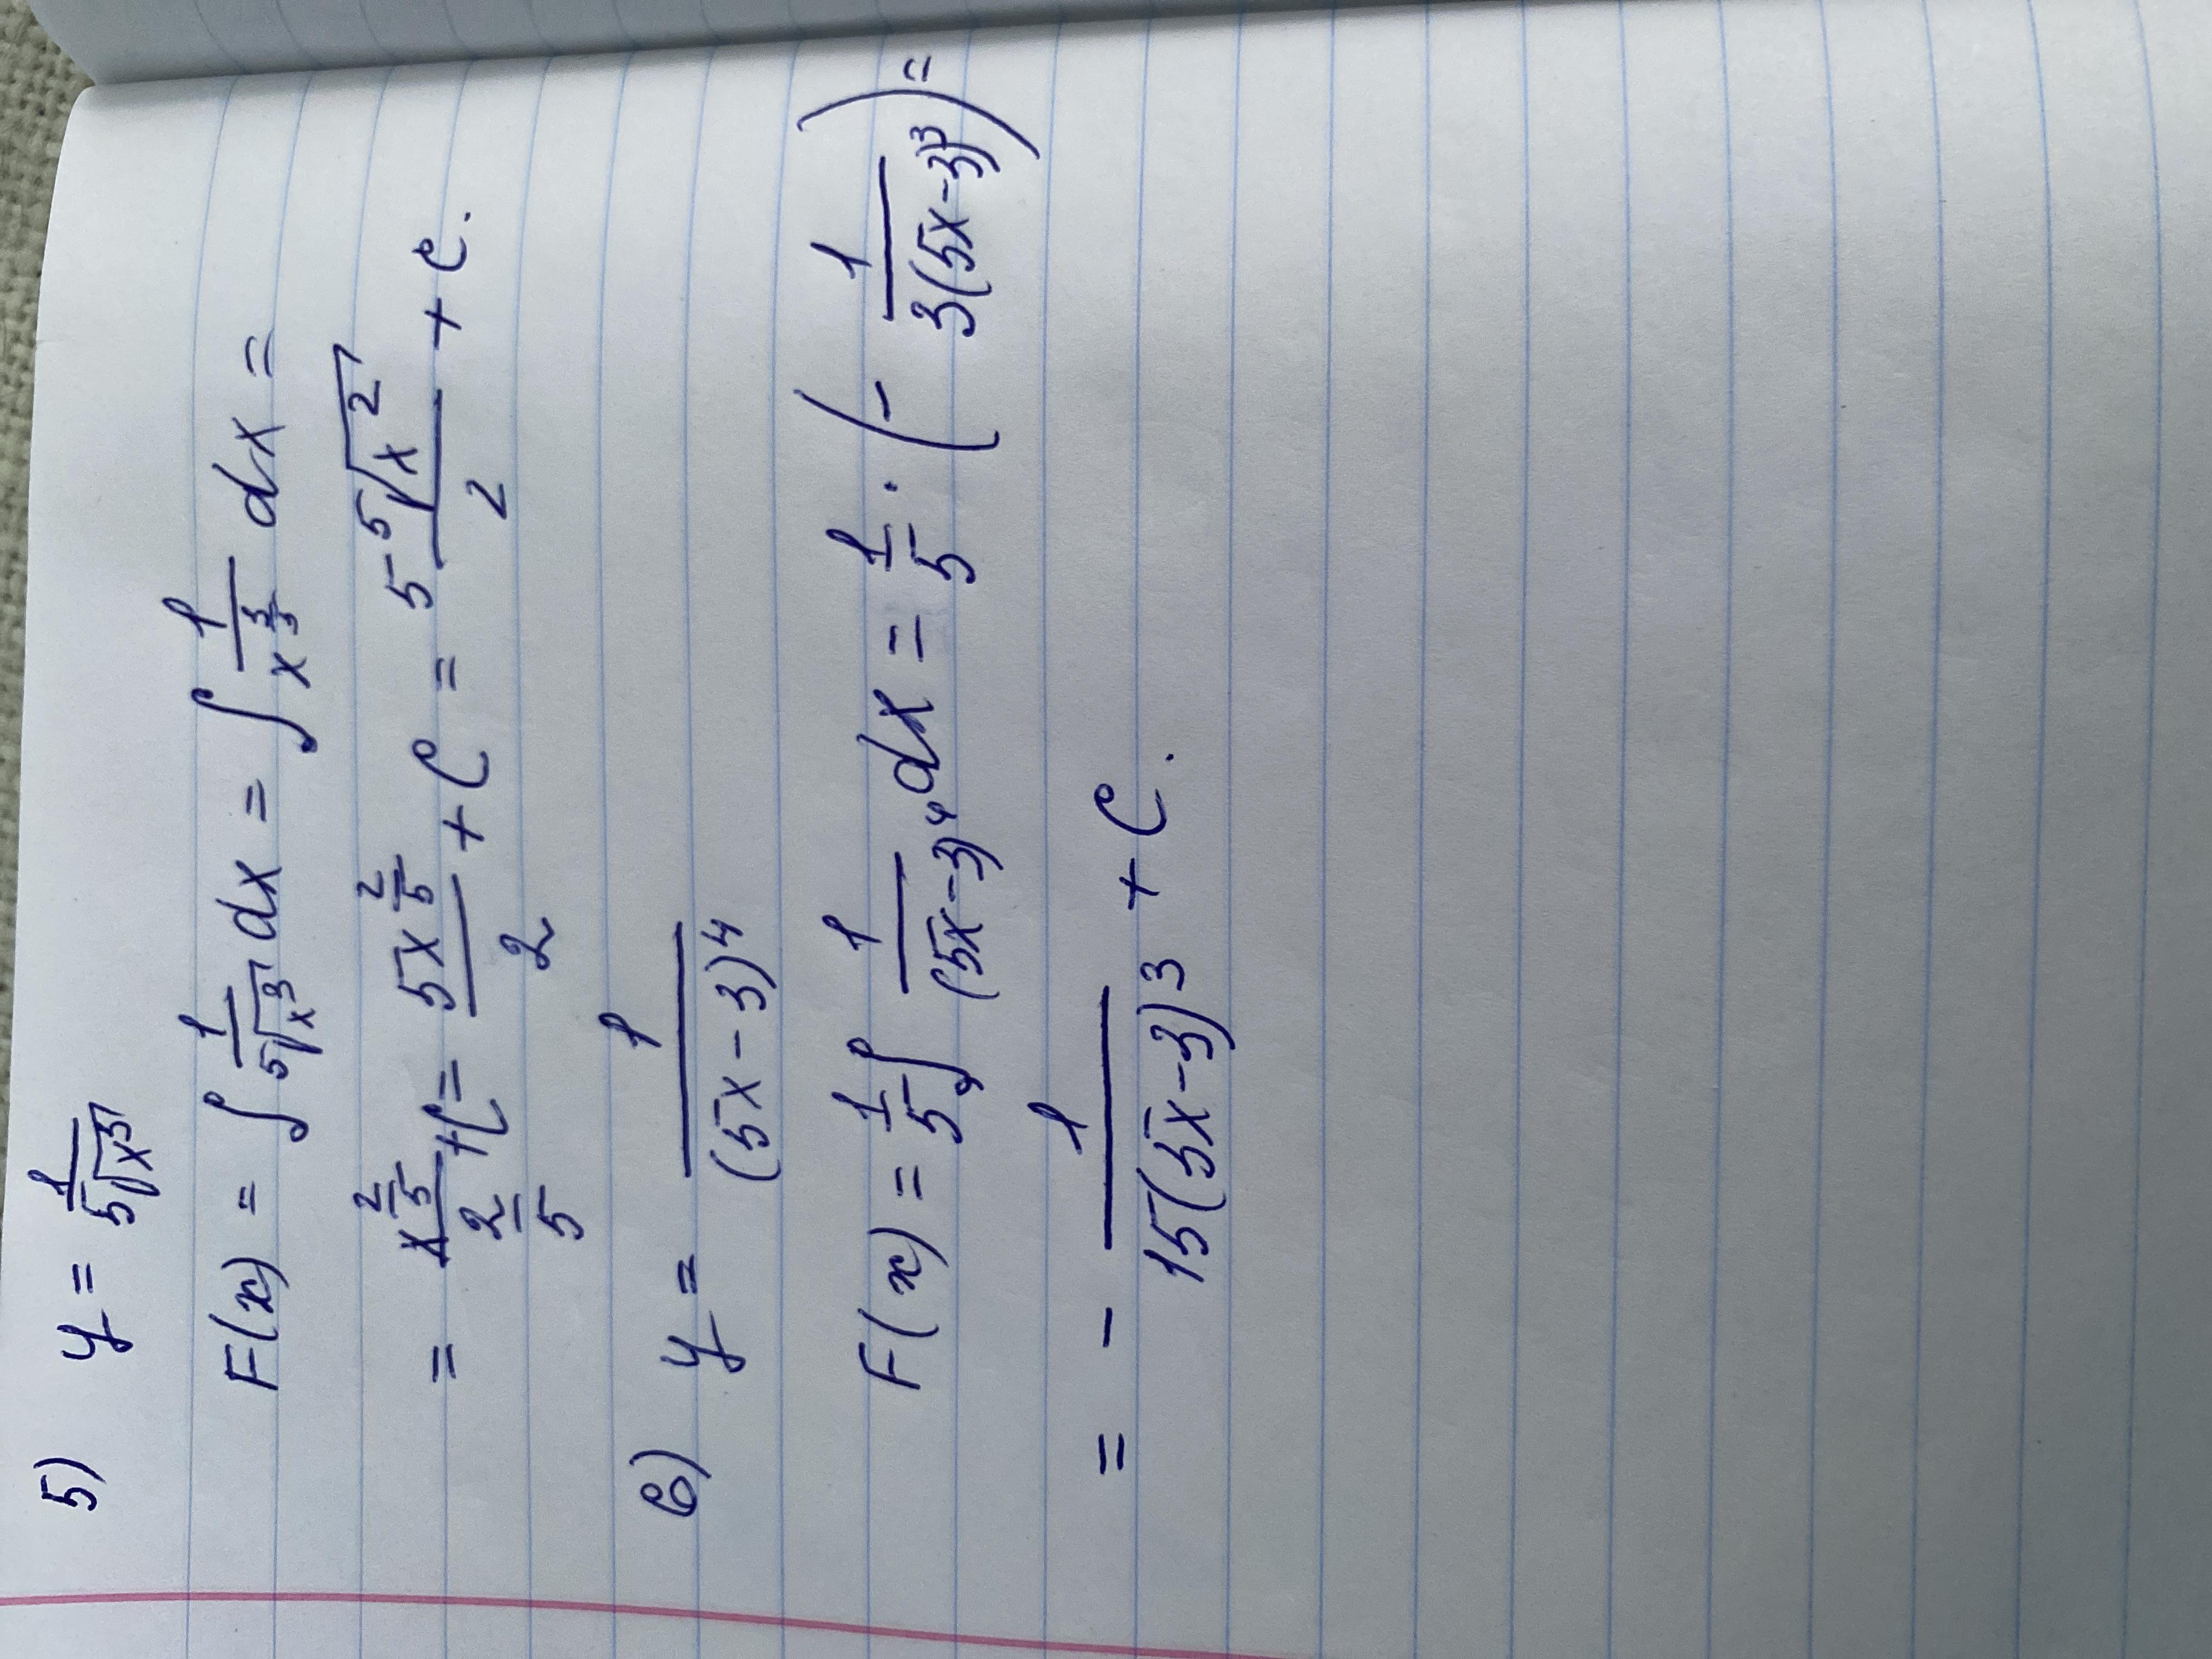 5) y = 1/⁵√x³
F(x) = ∫ 1/⁵√x³ dx = ∫ 1/x^(3/5) dx =
= x^(2/5)/(2/5) + C = 5x^(2/5)/2 + C = 5 ⁵√x²/2 + C.
6) y = 1/(5x-3)⁴
F(x) = 1/5 ∫ 1/(5x-3)⁴ dx = 1/5 · (- 1/3(5x-3)³) =
= - 1/15(5x-3)³ + C.